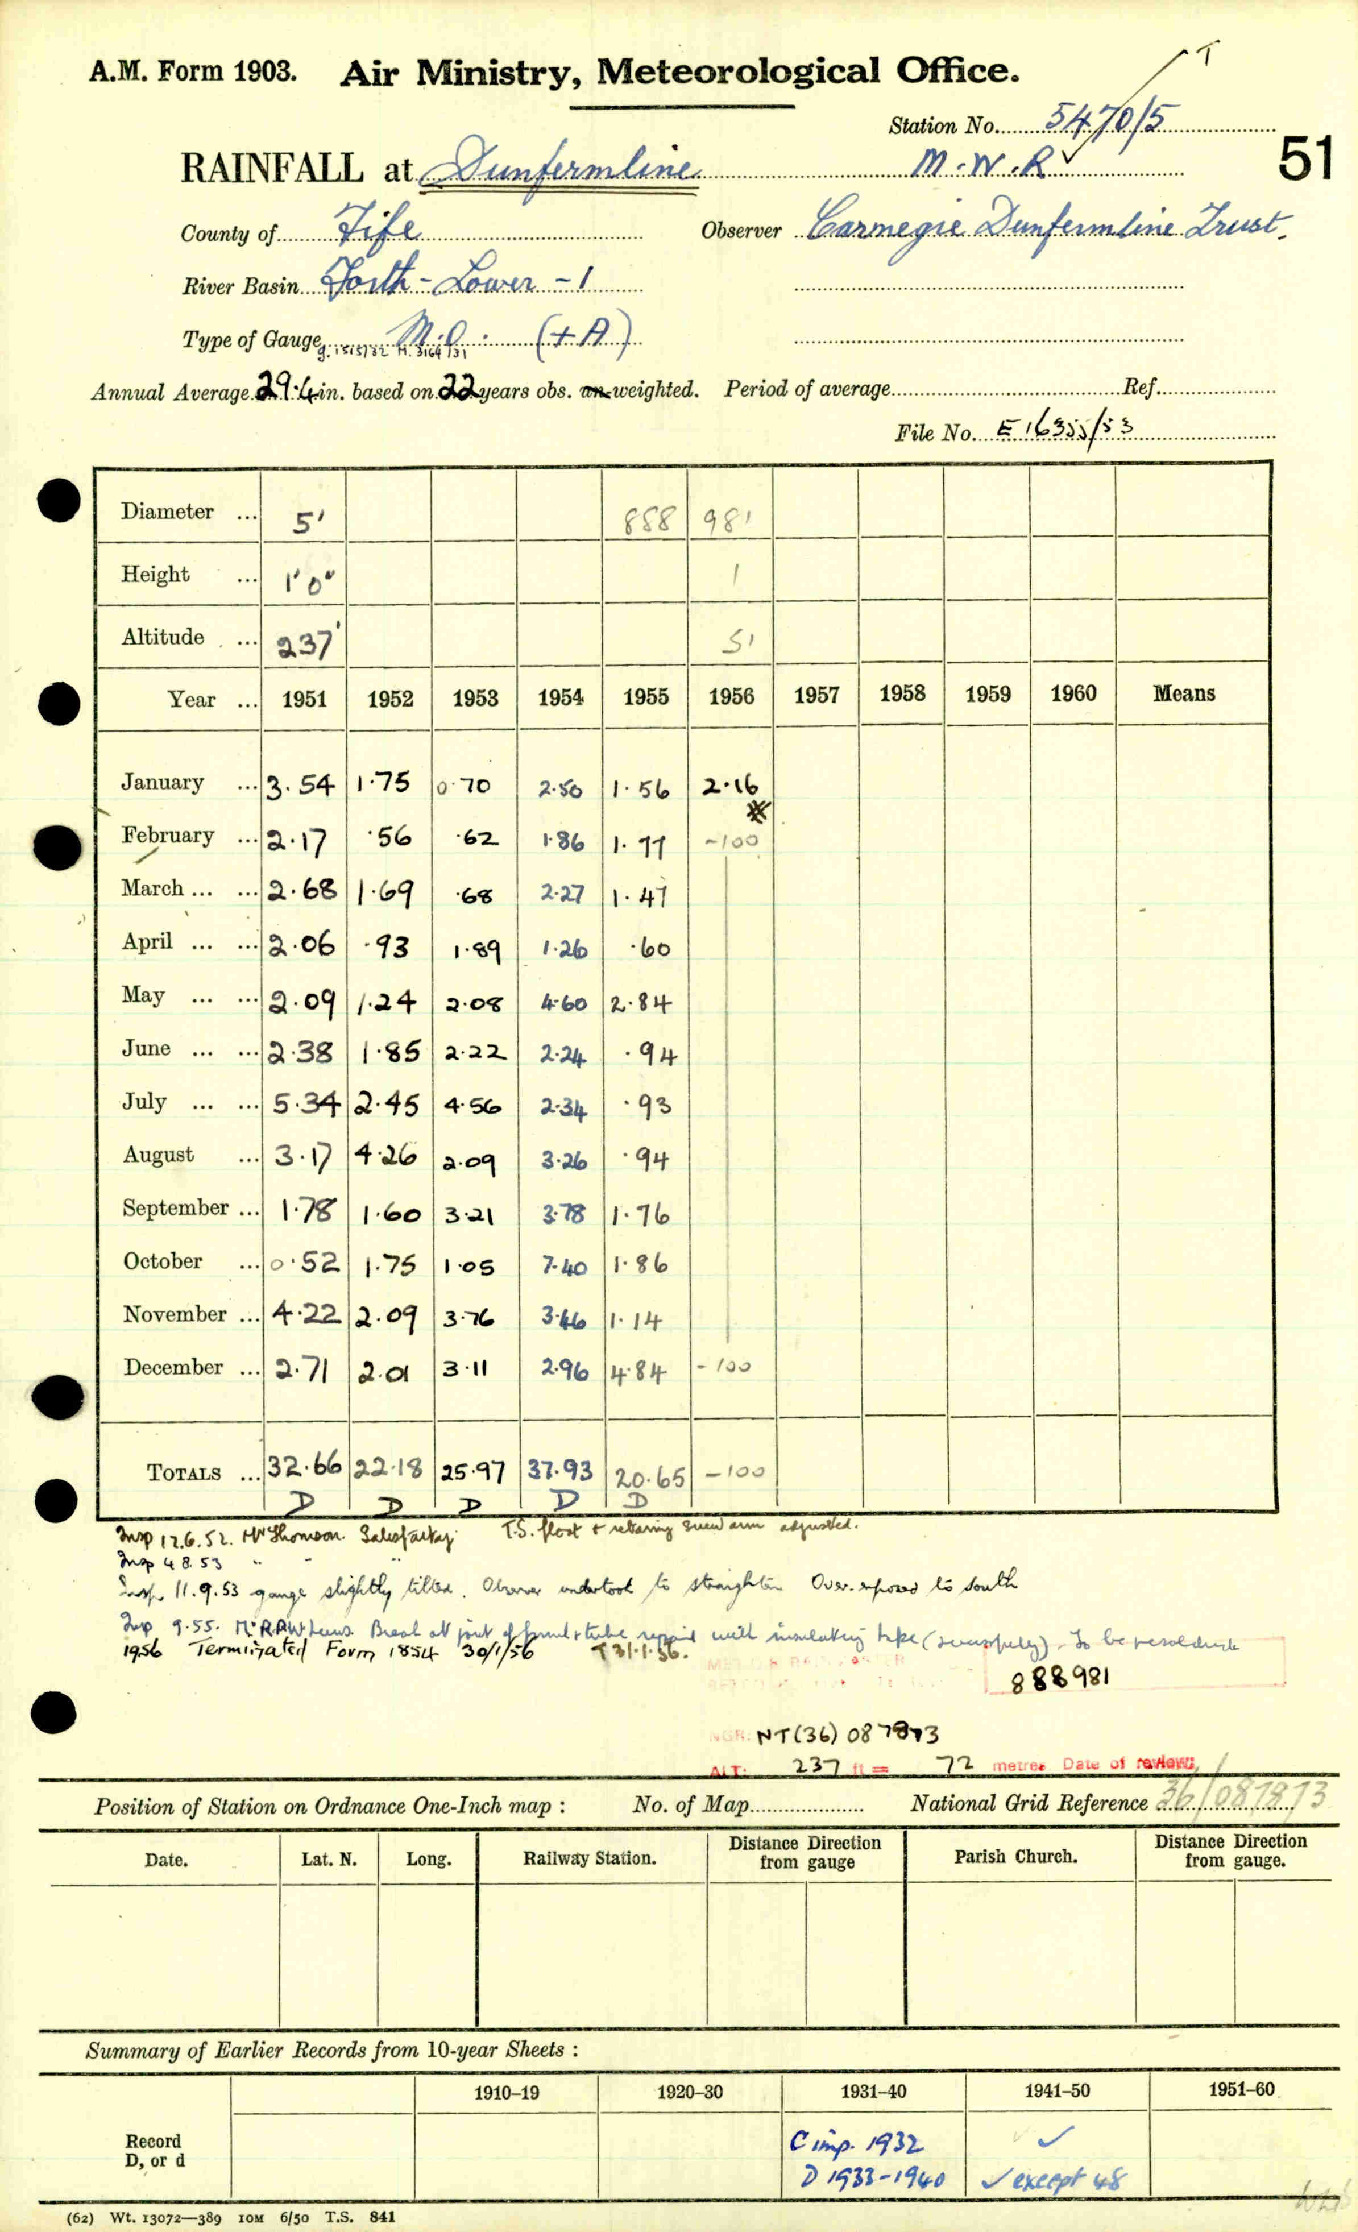 A.M. Form 1903. Air Ministry, Meteorological Office.
T
Station No. 5470/5
51
RAINFALL at Dunfermline M.W.R ✓
County of Fife Observer Carnegie Dunfermline Trust.
River Basin Forth - Lower - 1
Type of Gauge M.O. (+A)
g. 1515/32 M. 3164/31
Annual Average 29.4 in. based on 22 years obs. un-weighted. Period of average Ref.
File No. E 16355/53
Diameter ... 5' 888 981
Height ... 1'0" 1
Altitude ... 237' 51
Year ... 1951 1952 1953 1954 1955 1956 1957 1958 1959 1960 Means
January ... 3.54 1.75 0.70 2.50 1.56 2.16
February ... 2.17 .56 .62 1.86 1.77 -100
March ... ... 2.68 1.69 .68 2.27 1.47
April ... ... 2.06 .93 1.89 1.26 .60
May ... ... 2.09 1.24 2.08 4.60 2.84
June ... ... 2.38 1.85 2.22 2.24 .94
July ... ... 5.34 2.45 4.56 2.34 .93
August ... 3.17 4.26 2.09 3.26 .94
September ... 1.78 1.60 3.21 3.78 1.76
October ... 0.52 1.75 1.05 7.40 1.86
November ... 4.22 2.09 3.76 3.46 1.14
December ... 2.71 2.01 3.11 2.96 4.84 -100
TOTALS ... 32.66 22.18 25.97 37.93 20.65 -100
D D D D D
Insp 12.6.52. Mr Thomson. Satisfactory. T.S. float + retaining screw arm adjusted.
Insp 4 8.53 " - "
Insp. 11.9.53 gauge slightly tilted. Observer undertook to straighten Over-exposed to south
Insp 9.55. Mr R.P.W. Lewis. Break at joint of funnel + tube repaired with insulating tape (successfully). To be resoldered
1956 Terminated Form 1854 30/1/56 T 31.1.56.
888981
NGR: NT(36) 087873
ALT: 237 ft = 72 metres Date of review
Position of Station on Ordnance One-Inch map : No. of Map National Grid Reference 36/087873
Date. Lat. N. Long. Railway Station. Distance Direction from gauge Parish Church. Distance Direction from gauge.
Summary of Earlier Records from 10-year Sheets :
1910–19 1920–30 1931–40 1941–50 1951–60
Record D, or d
C imp. 1932 ✓
D 1933-1940 ✓ except 48
(62) Wt. 13072—389 10M 6/50 T.S. 841